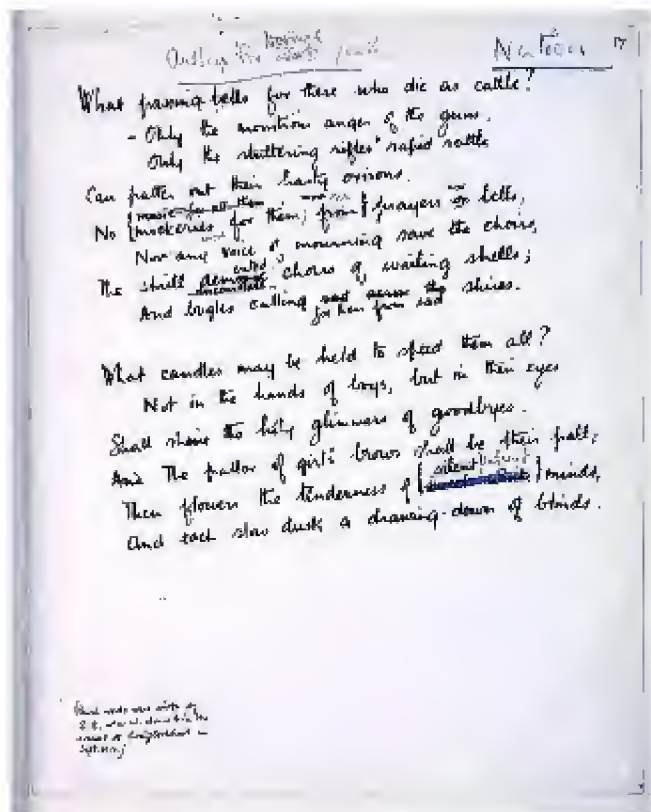 Anthem for Doomed Youth
What passing bells for these who die as cattle?
- Only the monstrous anger of the guns.
Only the stuttering rifles' rapid rattle
Can patter out their hasty orisons.
music for all them
No mockeries for them; from prayers or bells,
Nor any voice of mourning save the choirs,
The shrill choirs of wailing shells;
And bugles calling sad across the shires.
for them from sad
What candles may be held to speed them all?
Not in the hands of boys, but in their eyes
Shall shine the holy glimmers of goodbyes.
And The pallor of girls' brows shall be their pall;
silent
Their flowers the tenderness of minds,
And each slow dusk a drawing-down of blinds.